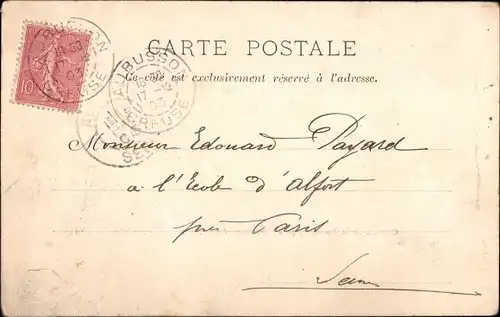 CARTE POSTALE
Ce côté est exclusivement réservé à l'adresse.
AUBUSSON
17
03
CREUSE
10
Monsieur Edouard Payard
à l'Ecole d'Alfort
près Paris
Seine